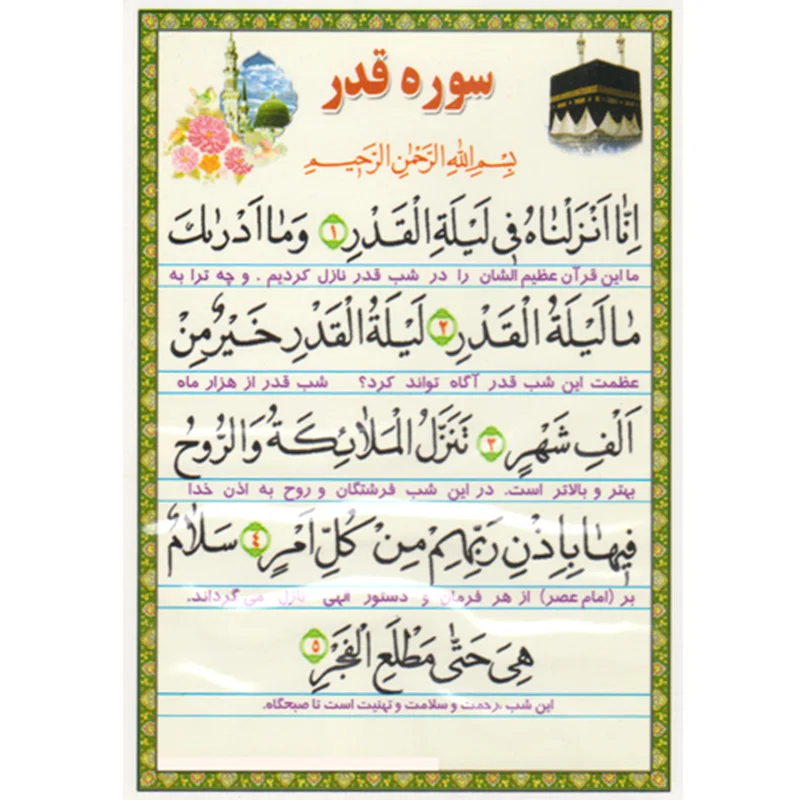 سوره قدر
بِسْمِ اللهِ الرَّحْمٰنِ الرَّحیمِ
اِنّا اَنْزَلْناهُ فی لَیْلَةِ الْقَدْرِ ۱ وَما اَدْریٰكَ
ما این قرآن عظیم الشان را در شب قدر نازل کردیم . و چه ترا به
ما لَیْلَةُ الْقَدْرِ ۲ لَیْلَةُ الْقَدْرِ خَیْرٌ مِنْ
عظمت این شب قدر آگاه تواند کرد؟ شب قدر از هزار ماه
اَلْفِ شَهْرٍ ۳ تَنَزَّلُ الْمَلائِكَةُ وَالرُّوحُ
بهتر و بالاتر است. در این شب فرشتگان و روح به اذن خدا
فیها بِاِذْنِ رَبِّهِمْ مِنْ كُلِّ اَمْرٍ ٤ سَلامٌ
بر (امام عصر) از هر فرمان و دستور الهی نازل می گرداند.
هِیَ حَتّیٰ مَطْلَعِ الْفَجْرِ ۵
این شب رحمت و سلامت و تهنیت است تا صبحگاه.